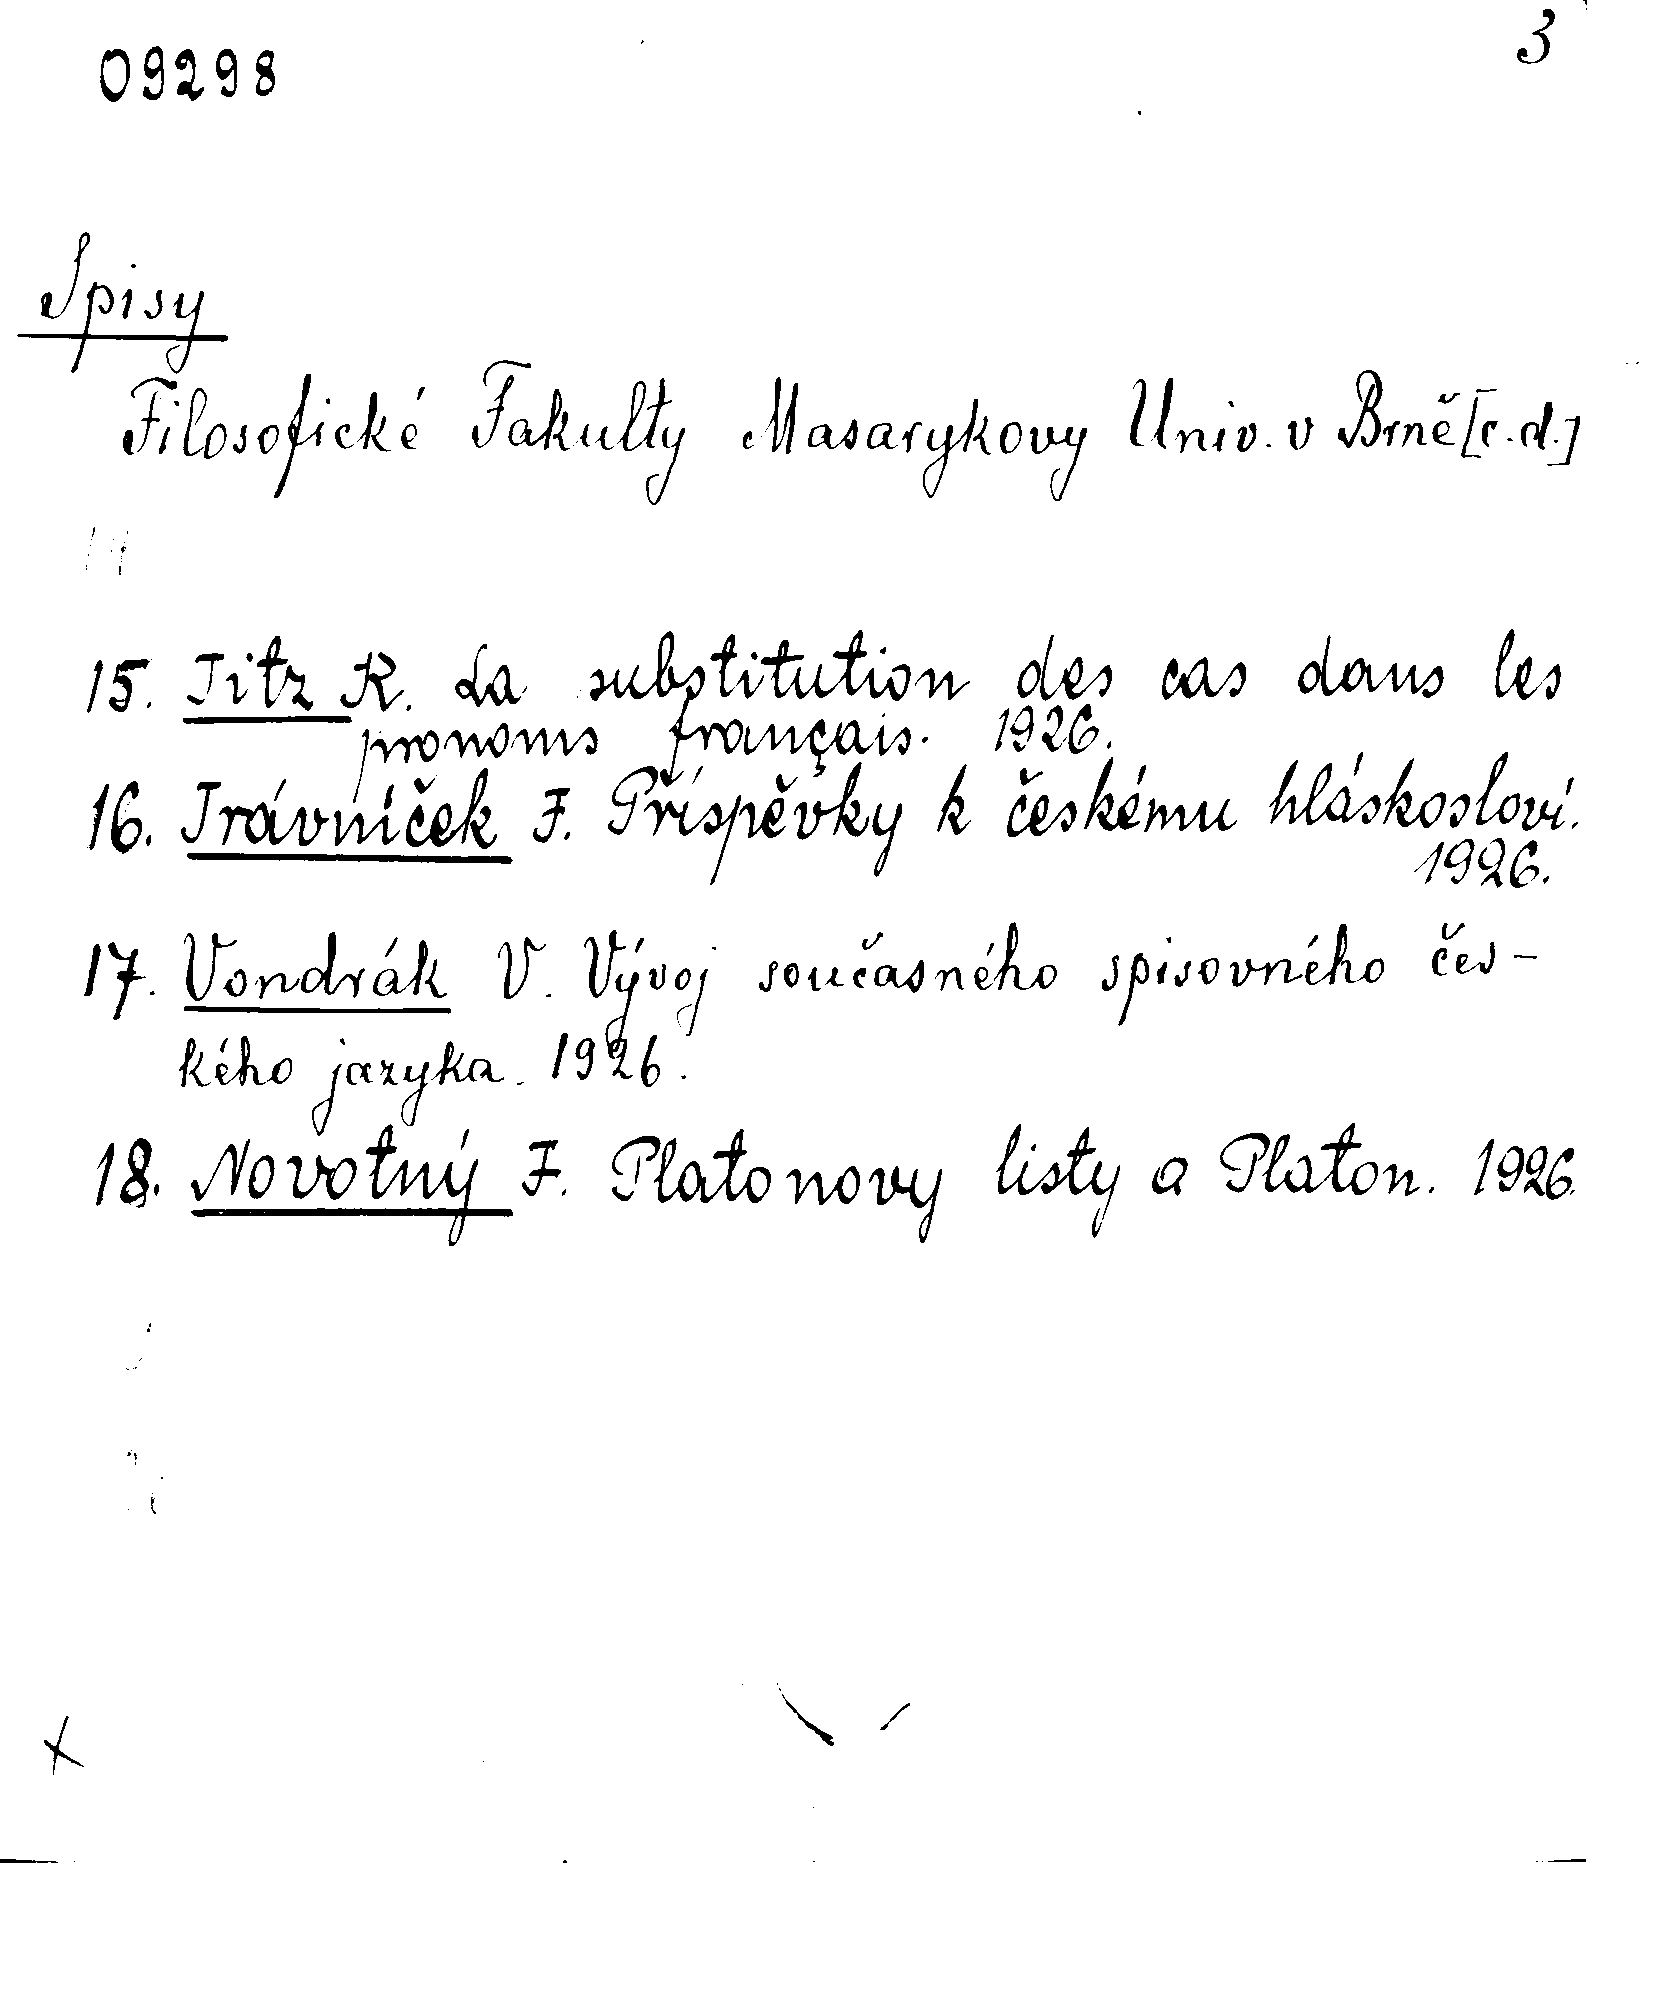 09298
3
Spisy
Filosofické Fakulty Masarykovy Univ. v Brně [c.d.]
15. Titz K. La substitution des cas dans les
pronoms français. 1926.
16. Trávníček F. Příspěvky k českému hláskosloví.
1926.
17. Vondrák V. Vývoj současného spisovného čes-
kého jazyka. 1926.
18. Novotný F. Platonovy listy a Platon. 1926.